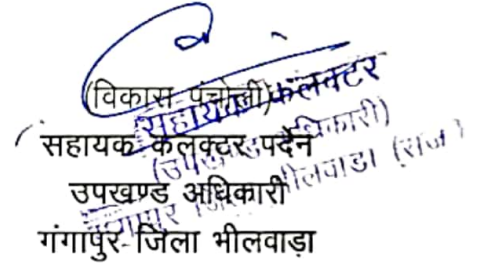 (विकास पंचोली)
सहायक कलक्टर पदैन
उपखण्ड अधिकारी
गंगापुर जिला भीलवाड़ा
सहायक कलक्टर
(उपखण्ड अधिकारी)
गंगापुर जिला भीलवाडा (राज)